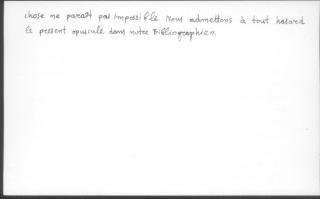 chose ne parait pas impossible Nous admettons à tout hasard
le present opuscule dans notre Bibliographie".